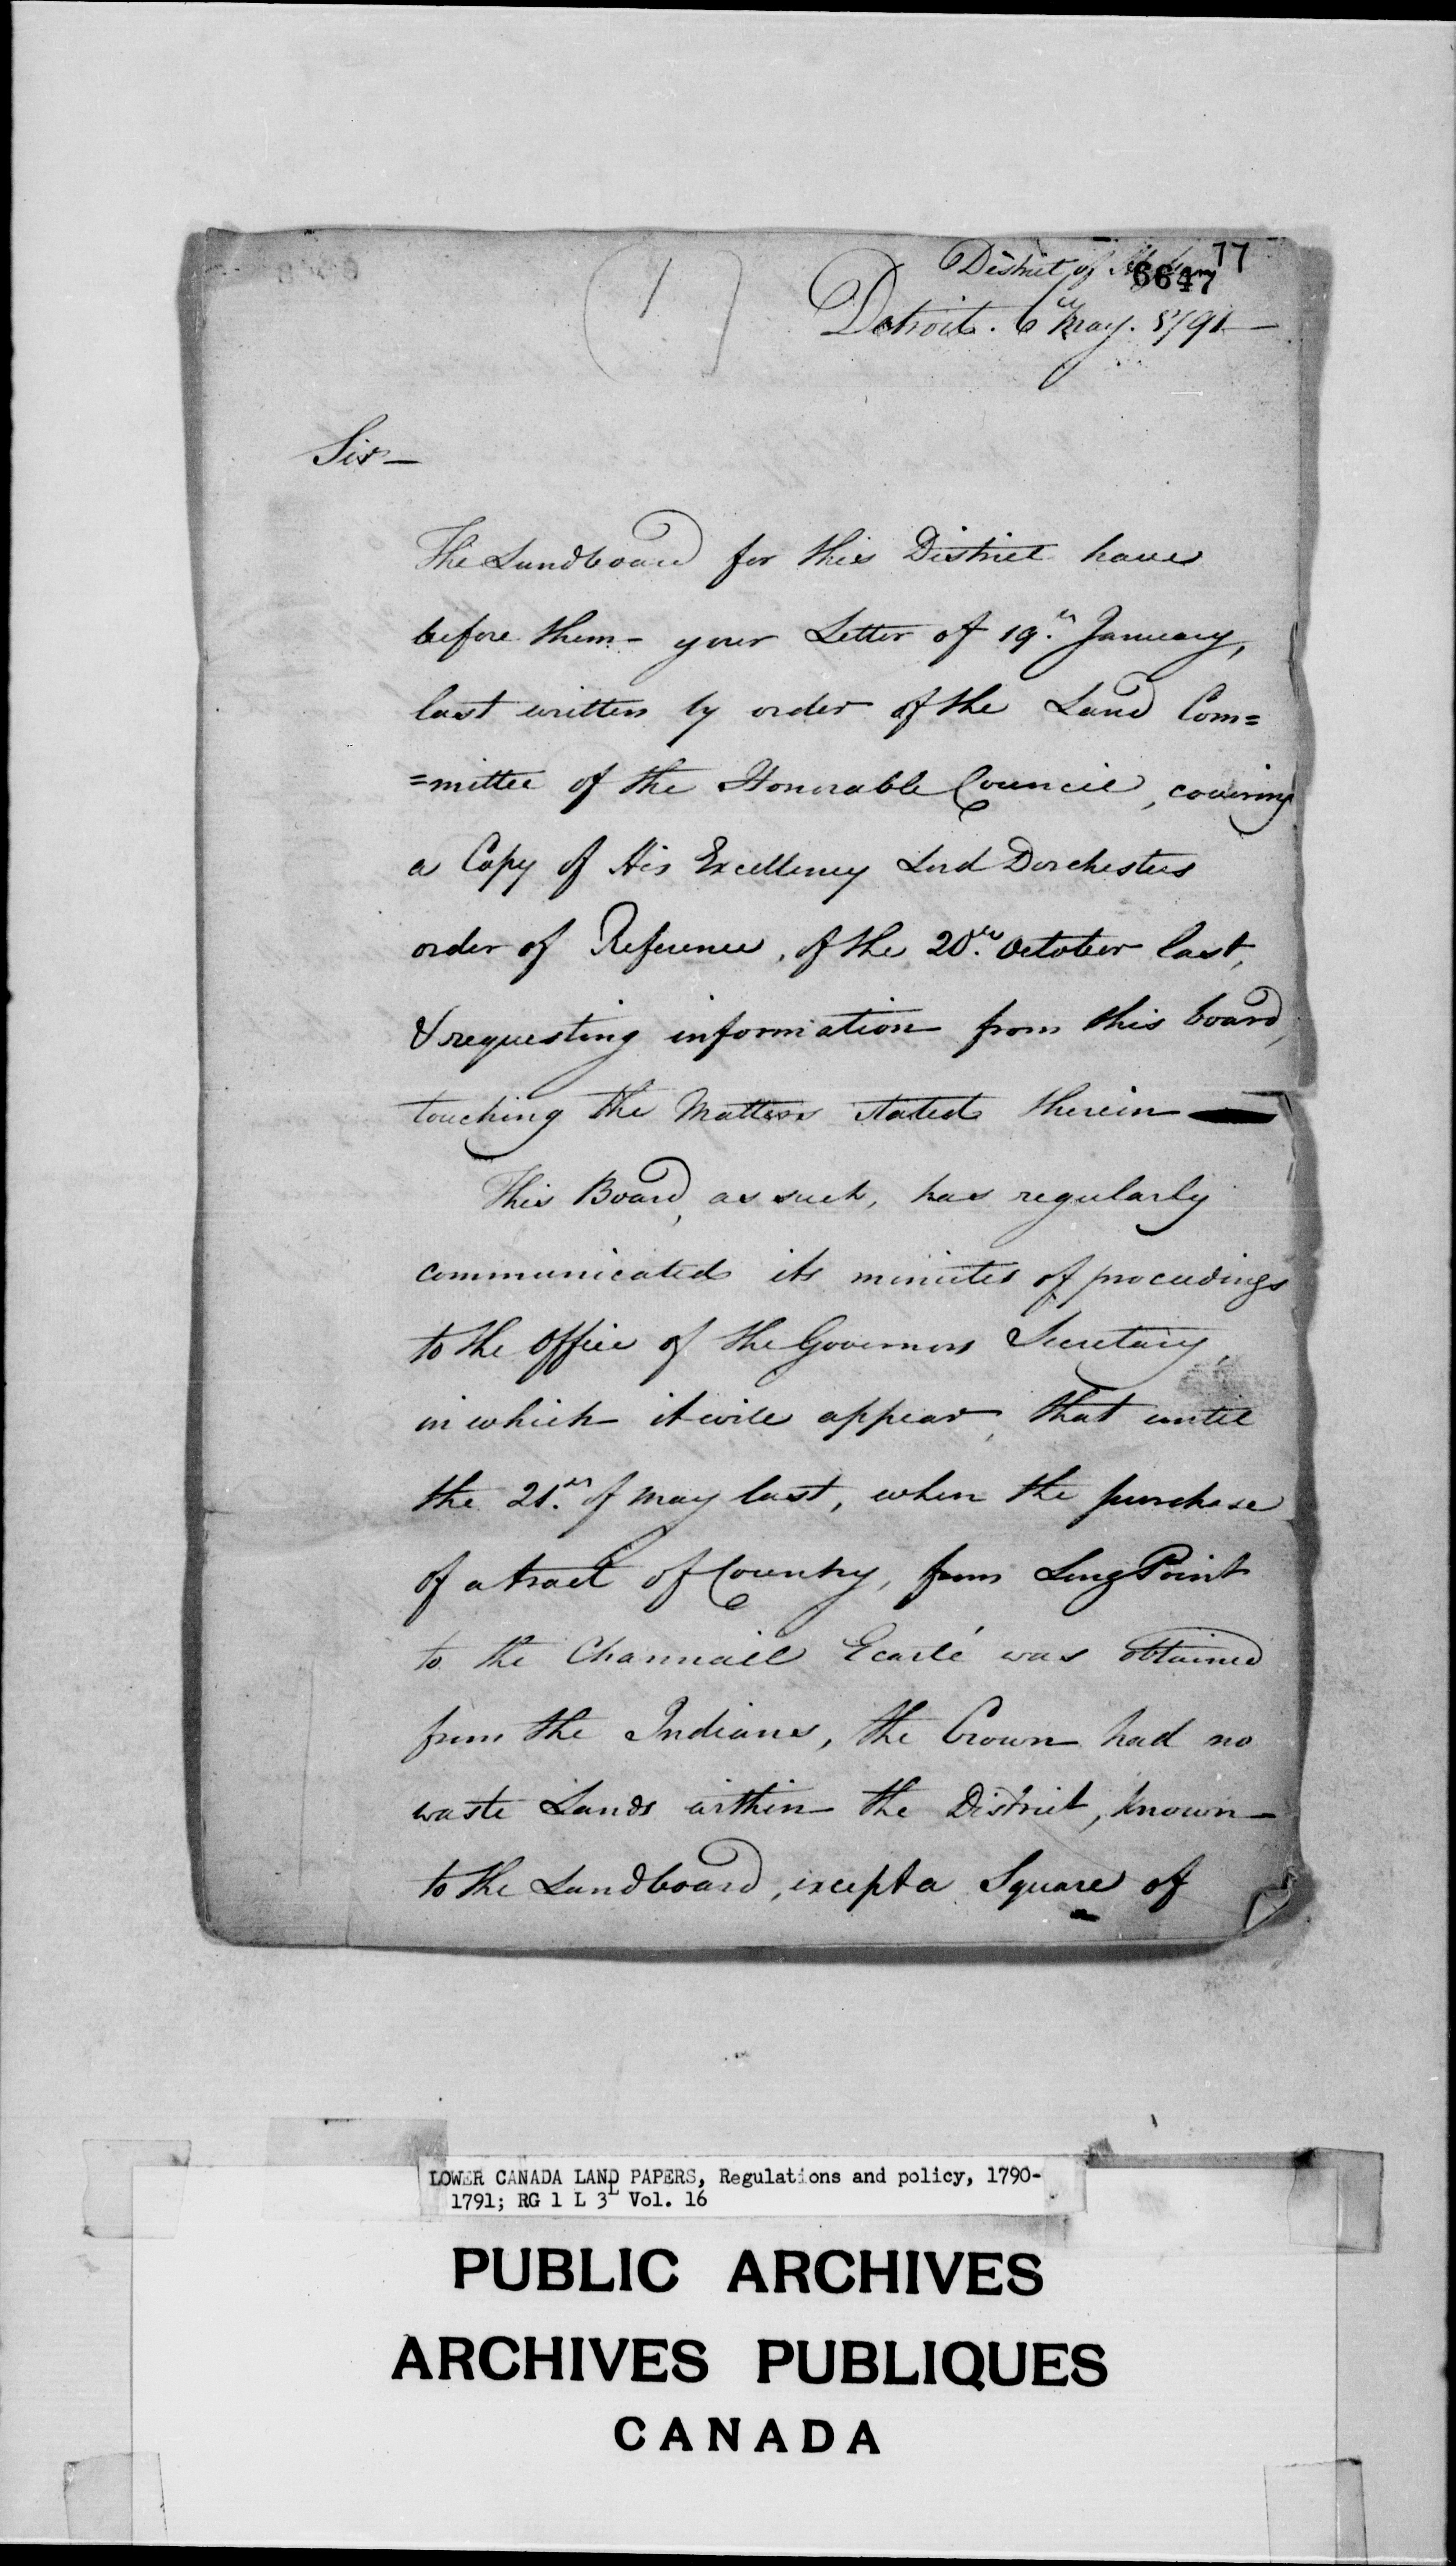 77
District of
6647
(1)
Detroit. 6th May. 1791—
Sir—
The Landboard for this District have
before them– your Letter of 19.th January,
last written by order of the Land Com=
=mittee of the Honorable Council, covering
a Copy of His Excellency Lord Dorchesters
order of Reference, of the 20.th October last,
& requesting information from this board,
touching the Matters stated therein —
This Board, as such, has regularly
communicated its minutes of proceedings
to the office of the Governors Secretary,
in which it will appear, that until
the 21.st of May last, when the purchase
of a tract of Country, from Long Point
to the Channail Ecarté was obtained
from the Indians, the Crown had no
waste Lands within the District, known
to the Landboard, except a Square of
LOWER CANADA LAND PAPERS, Regulations and policy, 1790-
1791; RG 1 L 3L Vol. 16
PUBLIC ARCHIVES
ARCHIVES PUBLIQUES
CANADA